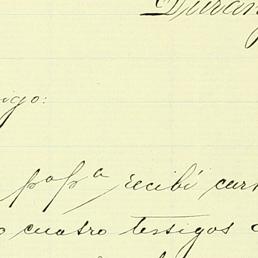 Duran
igo:
papa recibí car
cuatro tessigos